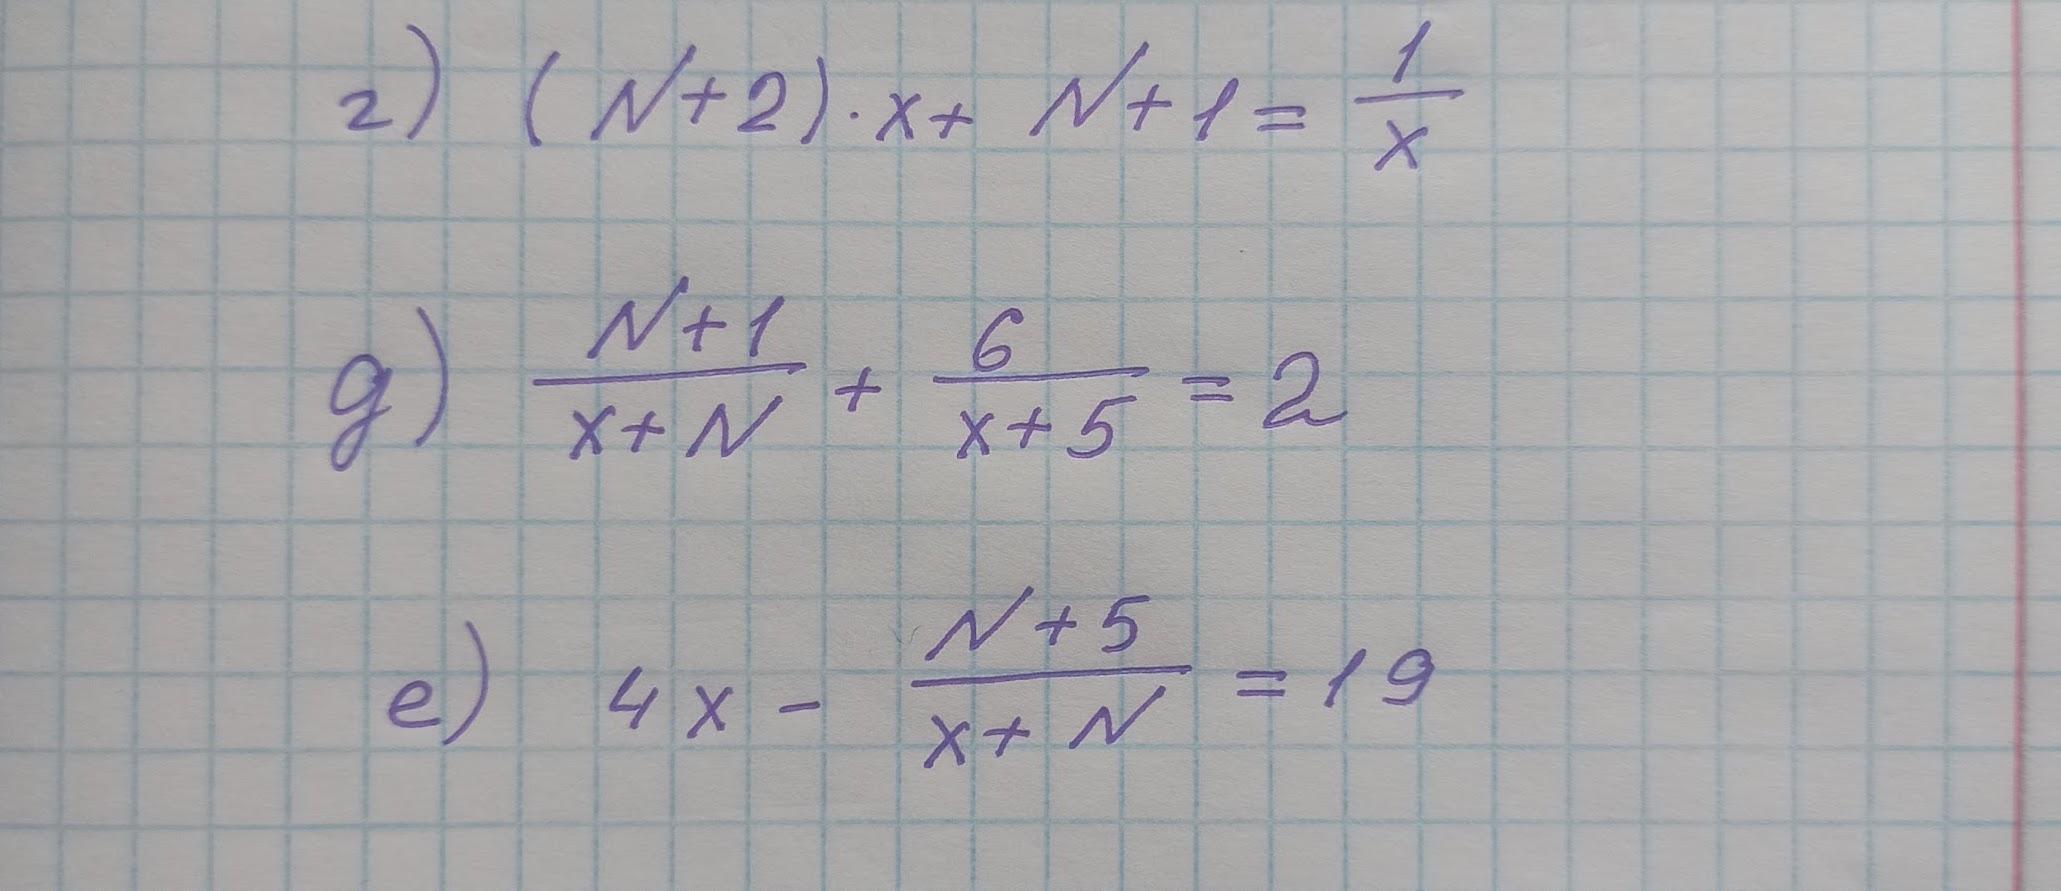 г) (N+2)·x+ N+1 = 1/x
д) (N+1)/(x+N) + 6/(x+5) = 2
е) 4x - (N+5)/(x+N) = 19